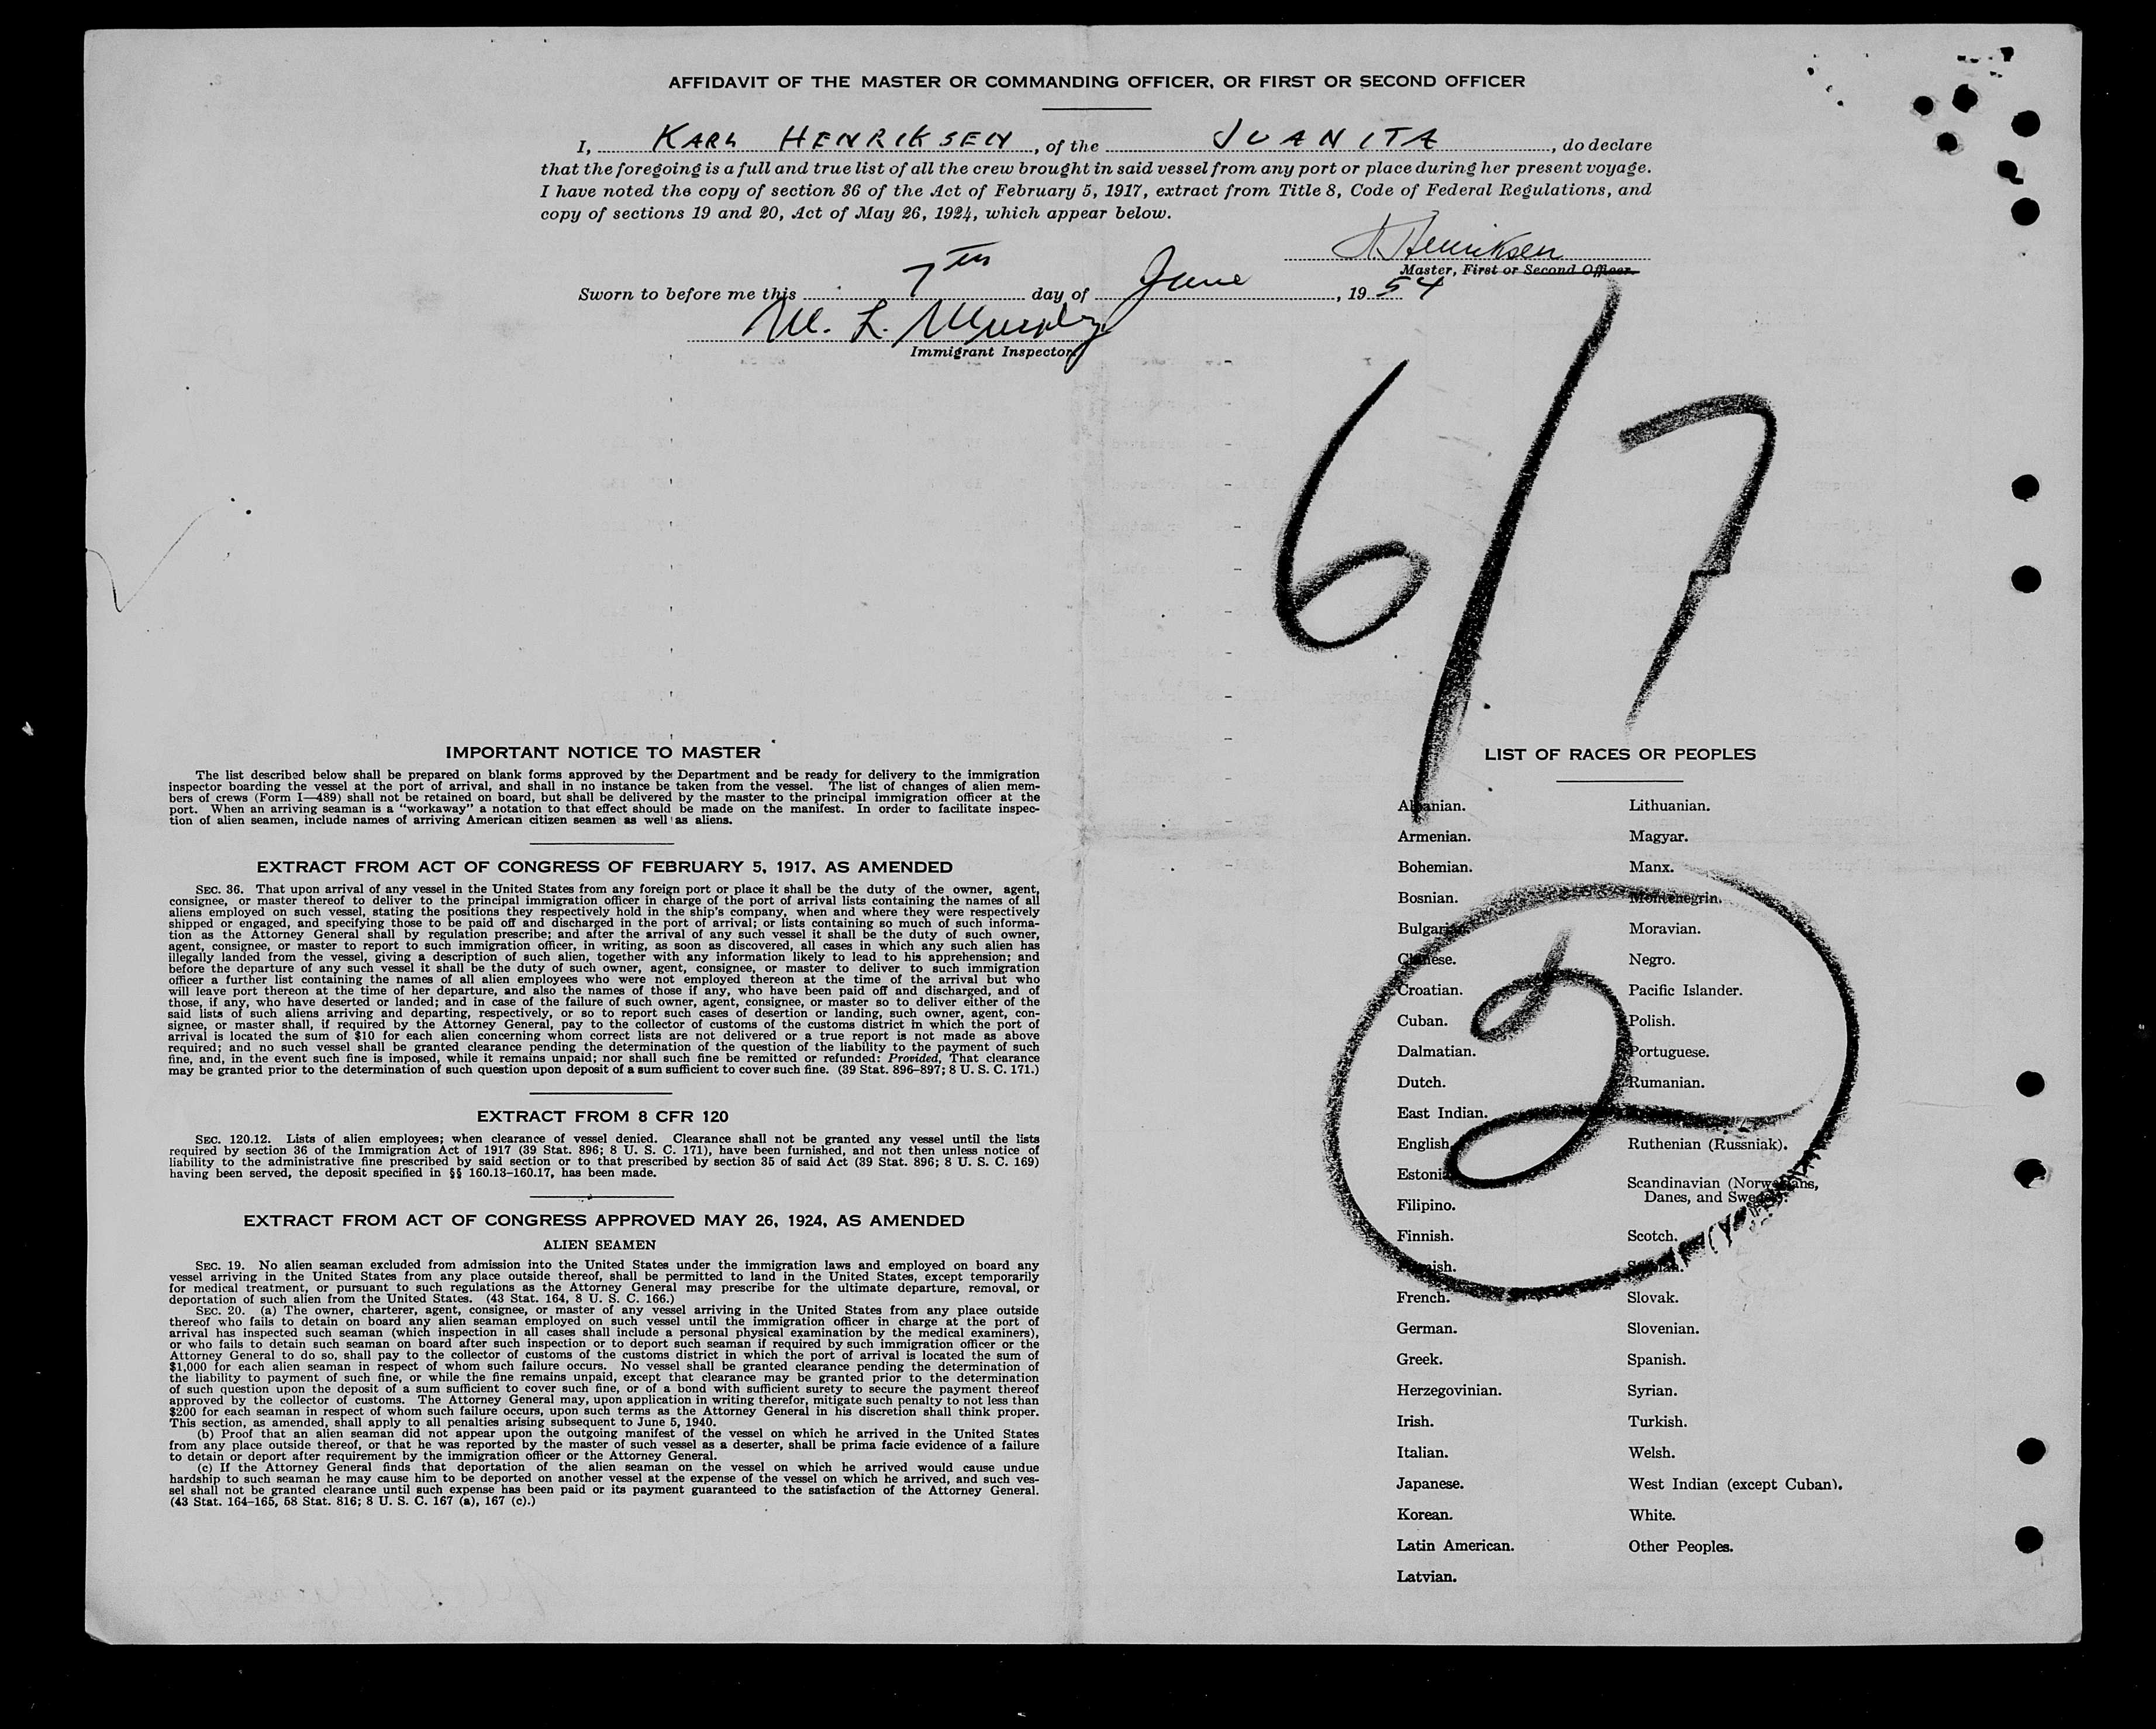 AFFIDAVIT OF THE MASTER OR COMMANDING OFFICER, OR FIRST OR SECOND OFFICER
I, KARL HENRIKSEN, of the JUANITA, do declare
that the foregoing is a full and true list of all the crew brought in said vessel from any port or place during her present voyage.
I have noted the copy of section 36 of the Act of February 5, 1917, extract from Title 8, Code of Federal Regulations, and
copy of sections 19 and 20, Act of May 26, 1924, which appear below.
K. Henriksen
Master, First or Second Officer.
Sworn to before me this 7th day of June, 1954
M. L. Murphy
Immigrant Inspector
6/7
IMPORTANT NOTICE TO MASTER
The list described below shall be prepared on blank forms approved by the Department and be ready for delivery to the immigration
inspector boarding the vessel at the port of arrival, and shall in no instance be taken from the vessel. The list of changes of alien mem-
bers of crews (Form I—489) shall not be retained on board, but shall be delivered by the master to the principal immigration officer at the
port. When an arriving seaman is a “workaway” a notation to that effect should be made on the manifest. In order to facilitate inspec-
tion of alien seamen, include names of arriving American citizen seamen as well as aliens.
EXTRACT FROM ACT OF CONGRESS OF FEBRUARY 5, 1917, AS AMENDED
SEC. 36. That upon arrival of any vessel in the United States from any foreign port or place it shall be the duty of the owner, agent,
consignee, or master thereof to deliver to the principal immigration officer in charge of the port of arrival lists containing the names of all
aliens employed on such vessel, stating the positions they respectively hold in the ship's company, when and where they were respectively
shipped or engaged, and specifying those to be paid off and discharged in the port of arrival; or lists containing so much of such informa-
tion as the Attorney General shall by regulation prescribe; and after the arrival of any such vessel it shall be the duty of such owner,
agent, consignee, or master to report to such immigration officer, in writing, as soon as discovered, all cases in which any such alien has
illegally landed from the vessel, giving a description of such alien, together with any information likely to lead to his apprehension; and
before the departure of any such vessel it shall be the duty of such owner, agent, consignee, or master to deliver to such immigration
officer a further list containing the names of all alien employees who were not employed thereon at the time of the arrival but who
will leave port thereon at the time of her departure, and also the names of those if any, who have been paid off and discharged, and of
those, if any, who have deserted or landed; and in case of the failure of such owner, agent, consignee, or master so to deliver either of the
said lists of such aliens arriving and departing, respectively, or so to report such cases of desertion or landing, such owner, agent, con-
signee, or master shall, if required by the Attorney General, pay to the collector of customs of the customs district in which the port of
arrival is located the sum of $10 for each alien concerning whom correct lists are not delivered or a true report is not made as above
required; and no such vessel shall be granted clearance pending the determination of the question of the liability to the payment of such
fine, and, in the event such fine is imposed, while it remains unpaid; nor shall such fine be remitted or refunded: Provided, That clearance
may be granted prior to the determination of such question upon deposit of a sum sufficient to cover such fine. (39 Stat. 896–897; 8 U. S. C. 171.)
EXTRACT FROM 8 CFR 120
SEC. 120.12. Lists of alien employees; when clearance of vessel denied. Clearance shall not be granted any vessel until the lists
required by section 36 of the Immigration Act of 1917 (39 Stat. 896; 8 U. S. C. 171), have been furnished, and not then unless notice of
liability to the administrative fine prescribed by said section or to that prescribed by section 35 of said Act (39 Stat. 896; 8 U. S. C. 169)
having been served, the deposit specified in §§ 160.13–160.17, has been made.
EXTRACT FROM ACT OF CONGRESS APPROVED MAY 26, 1924, AS AMENDED
ALIEN SEAMEN
SEC. 19. No alien seaman excluded from admission into the United States under the immigration laws and employed on board any
vessel arriving in the United States from any place outside thereof, shall be permitted to land in the United States, except temporarily
for medical treatment, or pursuant to such regulations as the Attorney General may prescribe for the ultimate departure, removal, or
deportation of such alien from the United States. (43 Stat. 164, 8 U. S. C. 166.)
SEC. 20. (a) The owner, charterer, agent, consignee, or master of any vessel arriving in the United States from any place outside
thereof who fails to detain on board any alien seaman employed on such vessel until the immigration officer in charge at the port of
arrival has inspected such seaman (which inspection in all cases shall include a personal physical examination by the medical examiners),
or who fails to detain such seaman on board after such inspection or to deport such seaman if required by such immigration officer or the
Attorney General to do so, shall pay to the collector of customs of the customs district in which the port of arrival is located the sum of
$1,000 for each alien seaman in respect of whom such failure occurs. No vessel shall be granted clearance pending the determination of
the liability to payment of such fine, or while the fine remains unpaid, except that clearance may be granted prior to the determination
of such question upon the deposit of a sum sufficient to cover such fine, or of a bond with sufficient surety to secure the payment thereof
approved by the collector of customs. The Attorney General may, upon application in writing therefor, mitigate such penalty to not less than
$200 for each seaman in respect of whom such failure occurs, upon such terms as the Attorney General in his discretion shall think proper.
This section, as amended, shall apply to all penalties arising subsequent to June 5, 1940.
(b) Proof that an alien seaman did not appear upon the outgoing manifest of the vessel on which he arrived in the United States
from any place outside thereof, or that he was reported by the master of such vessel as a deserter, shall be prima facie evidence of a failure
to detain or deport after requirement by the immigration officer or the Attorney General.
(c) If the Attorney General finds that deportation of the alien seaman on the vessel on which he arrived would cause undue
hardship to such seaman he may cause him to be deported on another vessel at the expense of the vessel on which he arrived, and such ves-
sel shall not be granted clearance until such expense has been paid or its payment guaranteed to the satisfaction of the Attorney General.
(43 Stat. 164–165, 58 Stat. 816; 8 U. S. C. 167 (a), 167 (c).)
LIST OF RACES OR PEOPLES
Albanian.
Armenian.
Bohemian.
Bosnian.
Bulgarian.
Chinese.
Croatian.
Cuban.
Dalmatian.
Dutch.
East Indian.
English.
Estonian.
Filipino.
Finnish.
Flemish.
French.
German.
Greek.
Herzegovinian.
Irish.
Italian.
Japanese.
Korean.
Latin American.
Latvian.
Lithuanian.
Magyar.
Manx.
Montenegrin.
Moravian.
Negro.
Pacific Islander.
Polish.
Portuguese.
Rumanian.
Ruthenian (Russniak).
Scandinavian (Norwegians,
Danes, and Swedes).
Scotch.
Slovak.
Slovenian.
Spanish.
Syrian.
Turkish.
Welsh.
West Indian (except Cuban).
White.
Other Peoples.
2